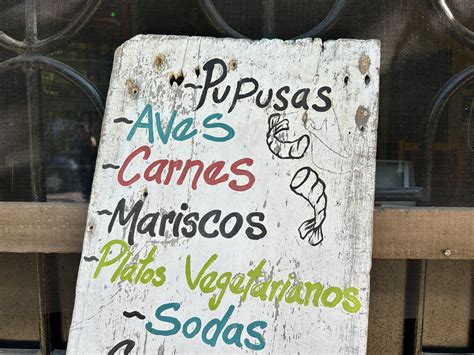 ~Pupusas
~Aves
~Carnes
~Mariscos
~Platos Vegetarianos
~Sodas